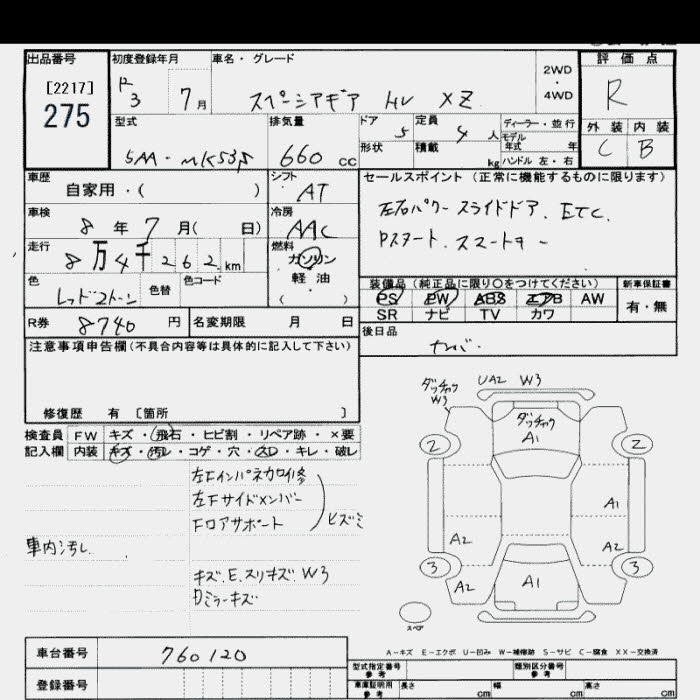 出品番号 初度登録年月 車名・グレード 2WD・4WD 評価点
[2217]
275
R3 7月 スペーシアギア HV XZ R
型式 排気量 ドア 定員 ディーラー・並行
5AA-MK53S 660cc 5 4人 モデル年式 年 外装 内装
形状 積載 kg ハンドル 左・右 C B
車歴 シフト セールスポイント (正常に機能するものに限ります)
自家用・( ) AT
左右パワースライドドア、ETC、
Pスタート、スマートキー
車検 冷房
8年7月( 日) AAC
走行 燃料
8万4千262km ガソリン・軽油・( )
色 色替 色コード
レッド2トーン
装備品 (純正品に限り○をつけてください) 新車保証書
PS PW ABS エアB AW 有・無
SR ナビ TV カワ
R券 8740円 名変期限 月 日
後日品
ナンバー
注意事項申告欄(不具合内容等は具体的に記入して下さい)
修復歴 有 〔箇所 〕
検査員記入欄 FW キズ・飛石・ヒビ割・リペア跡・×要
内装 キズ・汚レ・コゲ・穴・スD・キレ・破レ
左Fインパネカロイ修
左Fサイドメンバー
Fロアサポート ヒズミ
車内汚レ
キズ、E、スリキズ、W3
Dミラーキズ
ダッチャク W3 UA2 W3
ダッチャク A1
2 2
A1
A2 A2
3 3
A2 A1
スペア
A-キズ E-エクボ U-凹み W-補修跡 S-サビ C-腐食 XX-交換済
車台番号 760120
登録番号
型式指定番号 参考 類別区分番号 参考
車庫証明用 参考 長さ cm 幅 cm 高さ cm